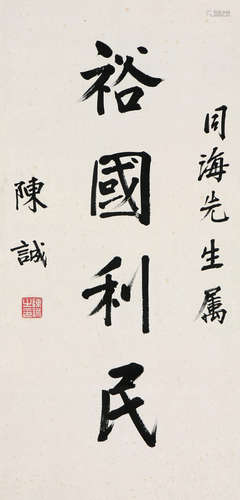 同海先生属
裕國利民
陳誠